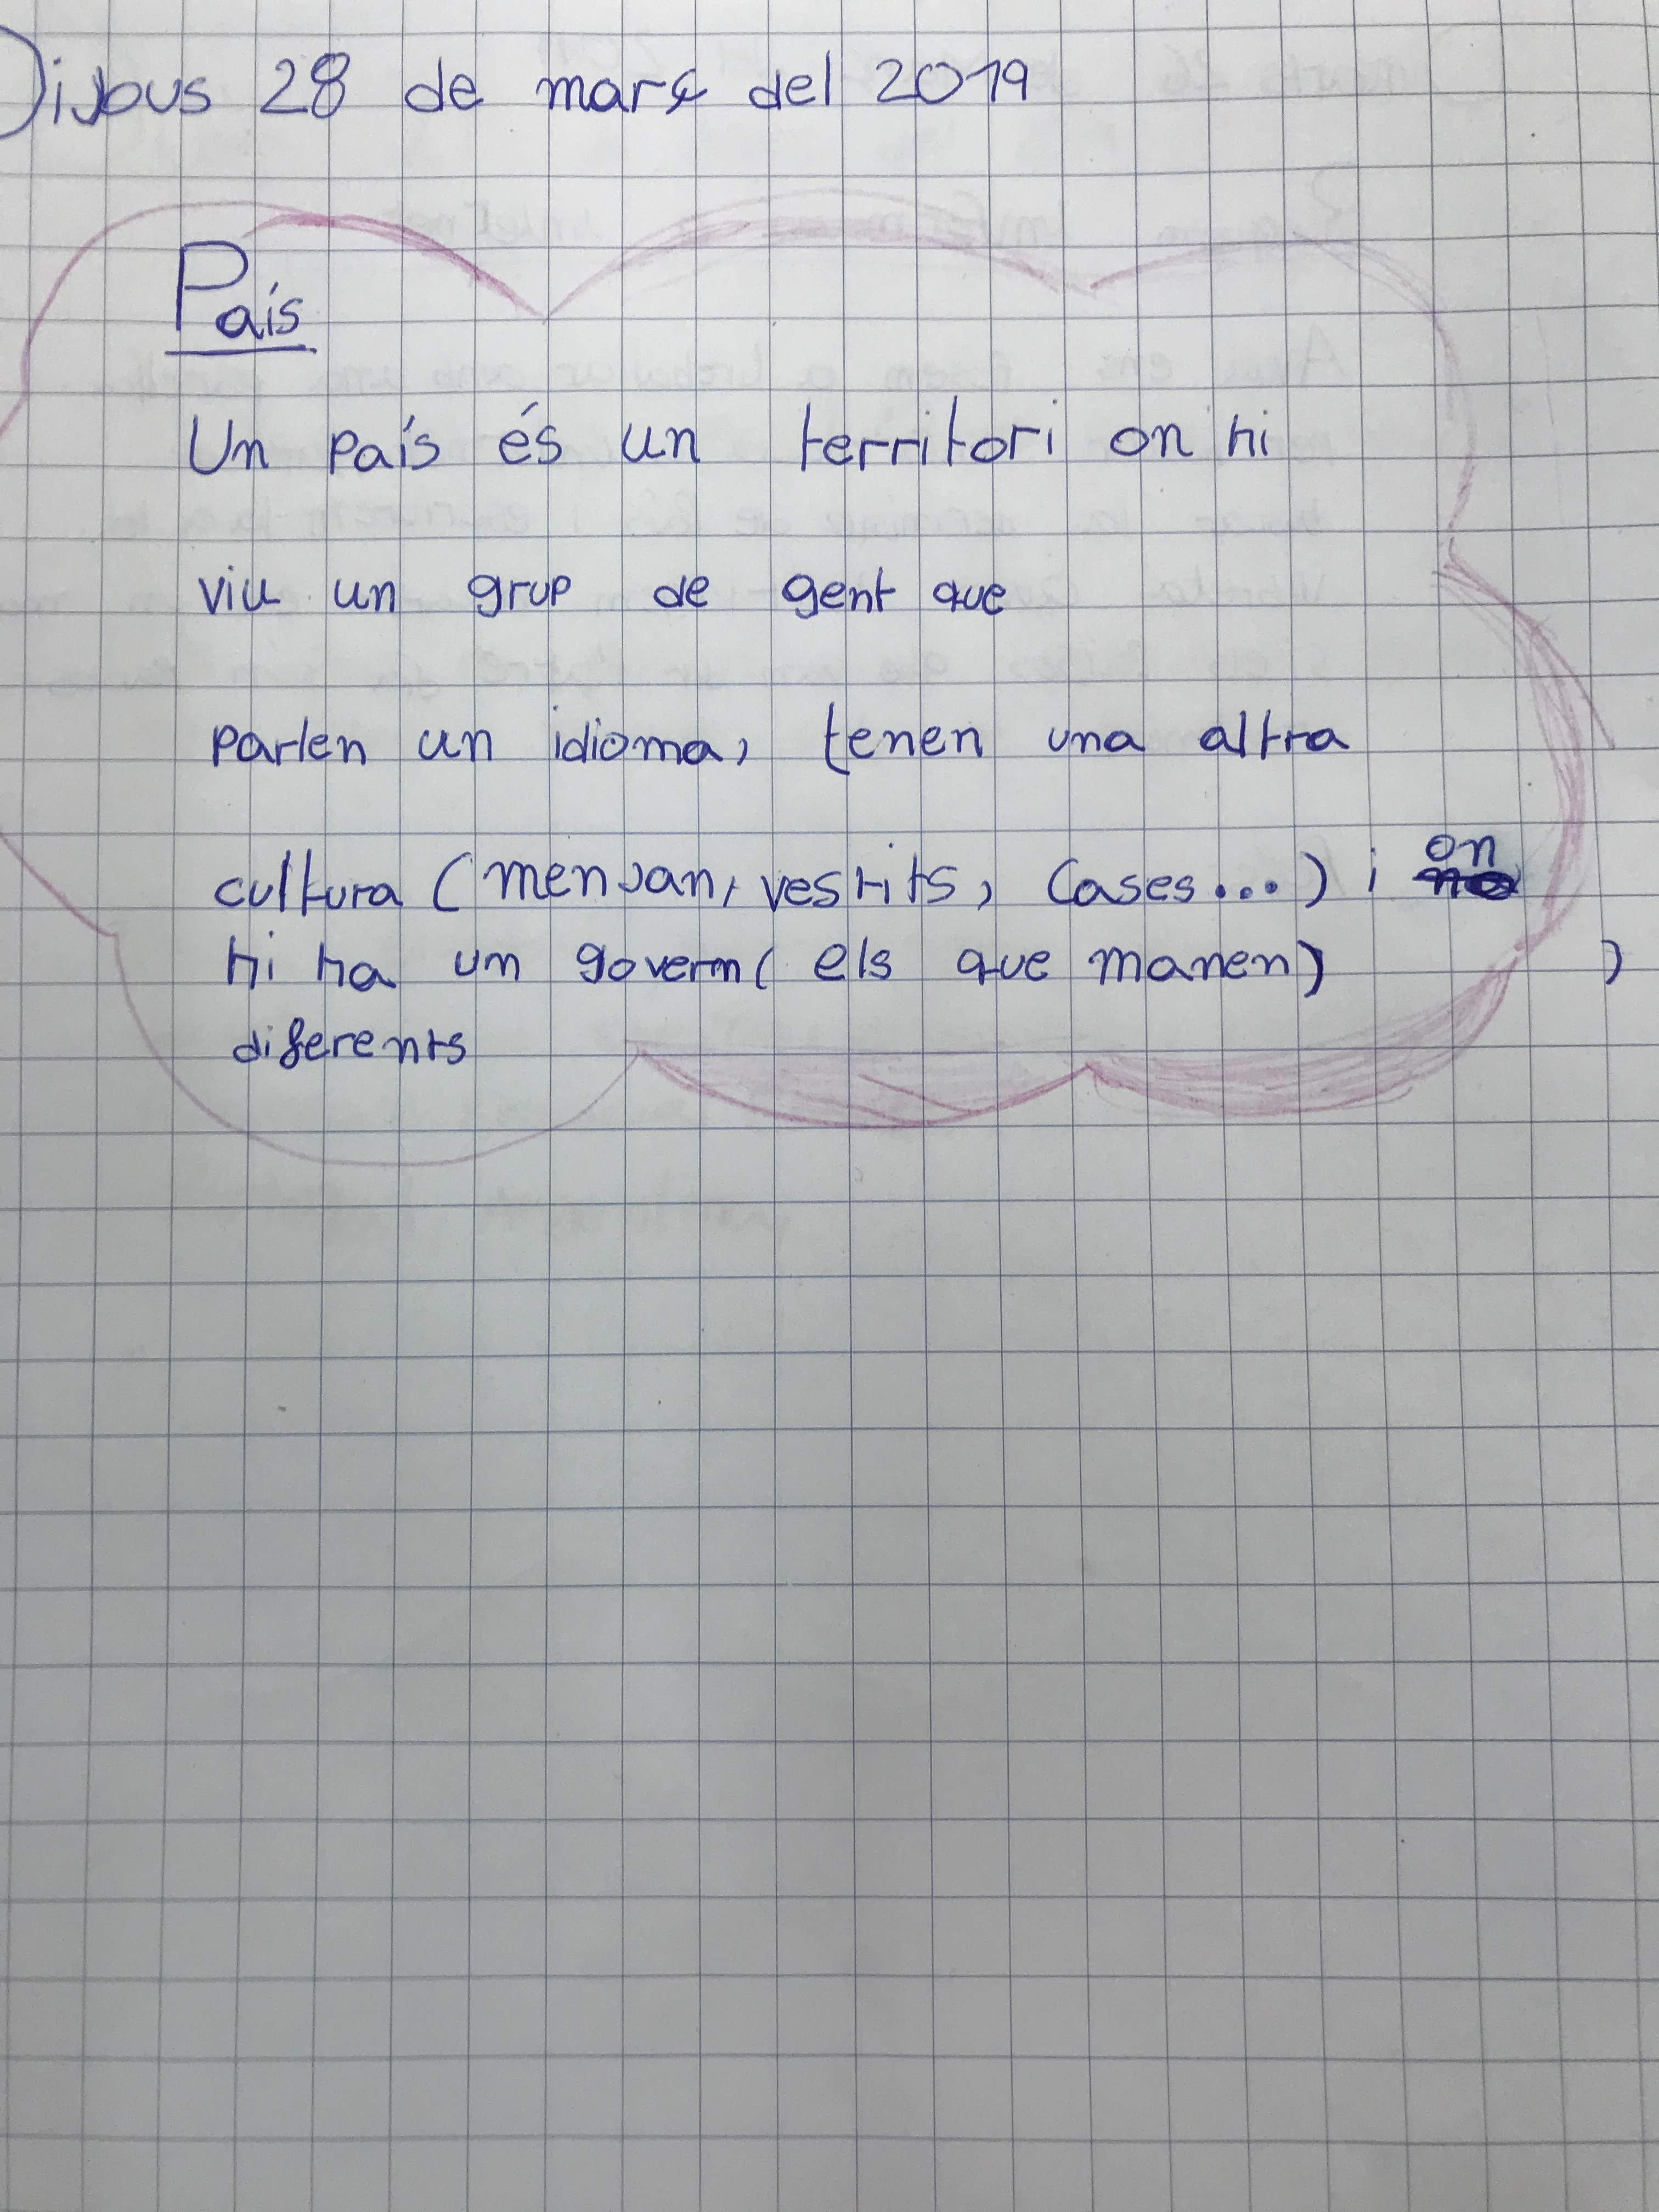 Dijous 28 de març del 2019
País
Un país és un territori on hi
viu un grup de gent que
parlen un idioma, tenen una altra
cultura (menjan, vestits, cases...) i on
hi ha un govern (els que manen)
diferents